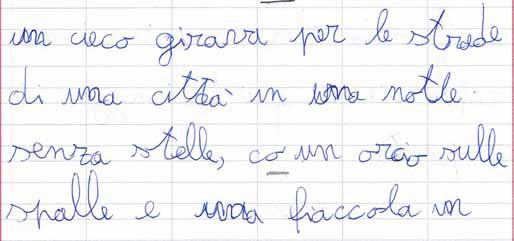 un cieco girava per le strade
di una città in una notte
senza stelle, co un orcio sulle
spalle e una fiaccola in